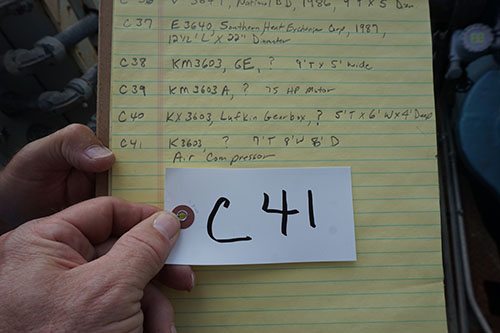 C 36 V 3641, National BD, 1986, 9' T X 5' Diam
C 37 E 3640, Southern Heat Exchanger Corp, 1987,
12½' L X 22" Diameter
C 38 KM3603, GE, ? 9' T X 5' Wide
C 39 KM3603A, ? 75 HP Motor
C40 KX3603, Lufkin Gearbox, ? 5' T X 6' W X 4' Deep
C41 K3603, ? 7' T 8' W 8' D
Air Compressor
C 41